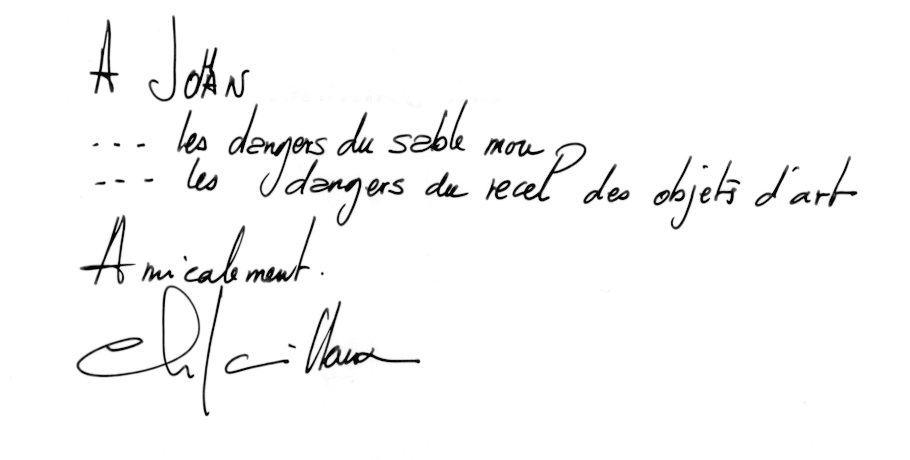 A JOHAN
--- les dangers du sable mou
--- les dangers du recel des objets d'art
Amicalement.